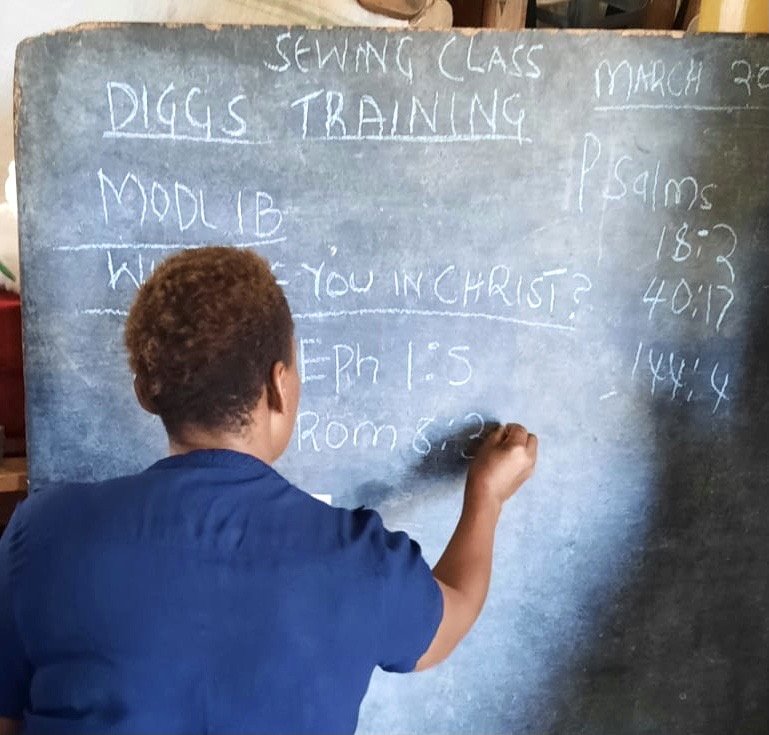 SEWING CLASS
DIGGS TRAINING
MODLIB
YOU IN CHRIST?
EPh 1:5
Rom 8:3
MARCH 20
Psalms
18:2
40:17
144:4